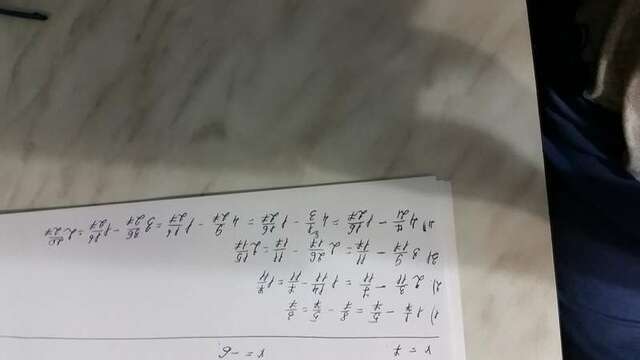 x = 7
x = -6
1) 1 1/7 - 5/7 = 8/7 - 5/7 = 3/7
2) 2 3/11 - 7/11 = 1 14/11 - 7/11 = 1 7/11
3) 3 9/17 - 11/17 = 2 26/17 - 11/17 = 2 15/17
4) 4 7/21 - 1 16/27 = 4 1/3 - 1 16/27 = 4 9/27 - 1 16/27 = 3 36/27 - 1 16/27 = 2 20/27